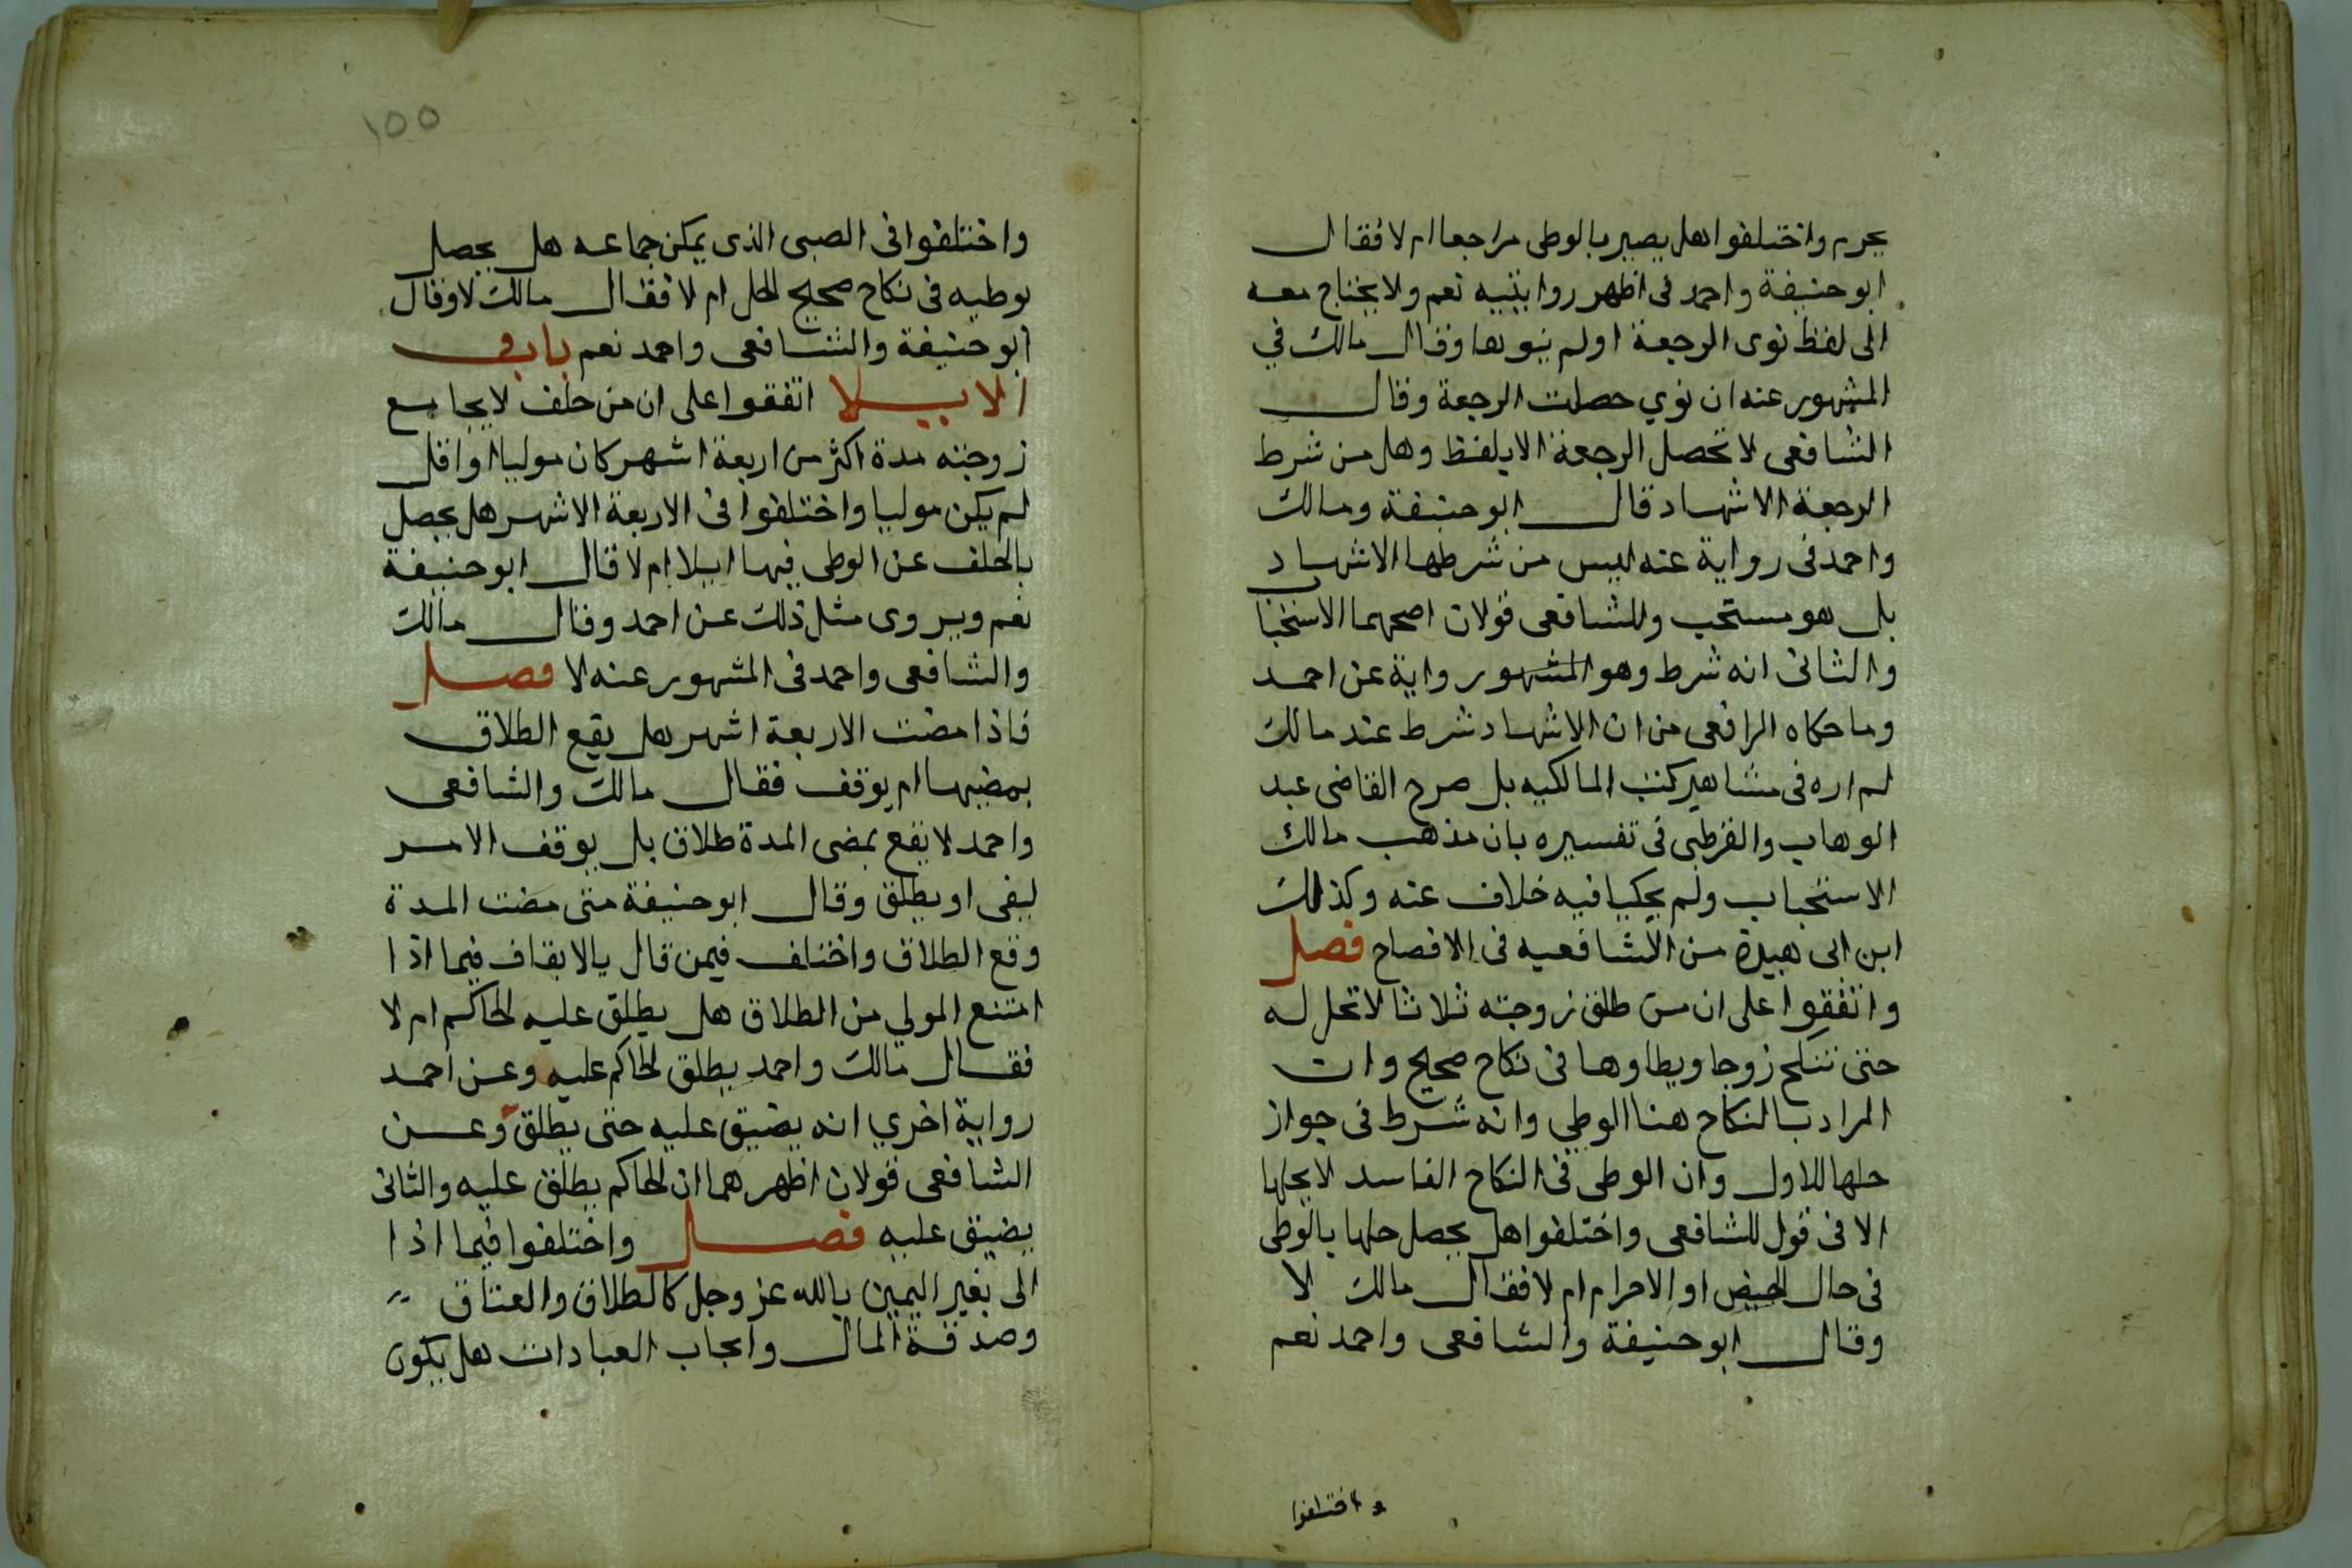 يحرم واختلفوا هل يصير بالوطى مراجعا ام لا فقال
ابو حنيفة واحمد فى اظهر روايتيه نعم ولا يحتاج معه
الى لفظ نوى الرجعة او لم ينوها وقال مالك في
المشهور عنه ان نوي حصلت الرجعة وقال
الشافعى لا تحصل الرجعة الا بلفظ وهل من شرط
الرجعة الاشهاد قال ابو حنيفة ومالك
واحمد فى رواية عنه ليس من شرطها الاشهاد
بل هو مستحب وللشافعى قولان اصحهما الاستحبا
والثانى انه شرط وهو المشهور رواية عن احمد
وما حكاه الرافعى من ان الاشهاد شرط عند مالك
لم اره فى مشاهير كتب المالكيه بل صرح القاضى عبد
الوهاب والقرطبى فى تفسيره بان مذهب مالك
الاستحباب ولم يحكيا فيه خلاف عنه وكذلك
ابن ابى هبيرة من الشافعيه فى الافصاح فصل
واتفقوا على ان من طلق زوجته ثلاثا لا تحل له
حتى تنكح زوجا ويطاوها فى نكاح صحيح وان
المراد بالنكاح هنا الوطي وانه شرط فى جواز
حلها للاول وان الوطى فى النكاح الفاسد لا يحلها
الا فى قول للشافعى واختلفوا هل يحصل حلها بالوطى
فى حال الحيض او الاحرام ام لا فقال مالك لا
وقال ابو حنيفة والشافعى واحمد نعم
واختلفوا
١٥٥
واختلفوا فى الصبى الذى يمكن جماعه هل يحصل
بوطيه فى نكاح صحيح الحل ام لا فقال مالك لا وقال
ابو حنيفة والشافعى واحمد نعم باب فى
الايلا اتفقوا على ان من حلف لا يجامع
زوجته مدة اكثر من اربعة اشهر كان موليا او اقل
لم يكن موليا واختلفوا فى الاربعة الاشهر هل يحصل
بالحلف عن الوطى فيها ايلا ام لا قال ابو حنيفة
نعم ويروى مثل ذلك عن احمد وقال مالك
والشافعى واحمد فى المشهور عنه لا فصل
فاذا مضت الاربعة اشهر هل يقع الطلاق
بمضيها ام يوقف فقال مالك والشافعى
واحمد لا يقع بمضى المدة طلاق بل يوقف الامر
ليفى او يطلق وقال ابو حنيفة متى مضت المدة
وقع الطلاق واختلف فيمن قال بالايقاف فيما اذا
امتنع المولي من الطلاق هل يطلق عليه الحاكم ام لا
فقال مالك واحمد يطلق الحاكم عليه وعن احمد
رواية اخري انه يضيق عليه حتى يطلق وعن
الشافعى قولان اظهرهما ان الحاكم يطلق عليه والثانى
يضيق عليه فصل واختلفوا فيما اذا
الى بغير اليمين بالله عز وجل كالطلاق والعتاق
وصدقة المال وايجاب العبادات هل يكون